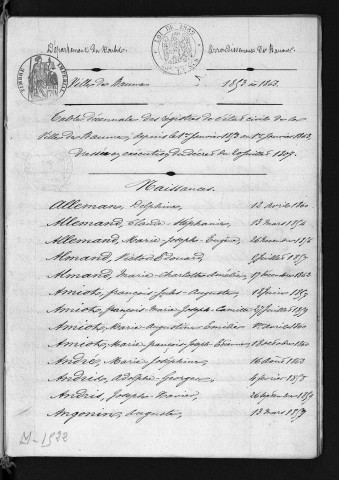 Département du Doubs. Arrondissement de Baume.
TIMBRE IMPÉRIAL
Ville de Baume 1853 à 1863.
Table décennale des registres de l'état civil de la
Ville de Baume, depuis le 1er janvier 1853 au 1er janvier 1863,
Dressée en exécution du décret du 20 juillet 1807.
Naissances.
Alleman, Delphine, 12 avril 1860
Allemand, Claude Stéphanie, 13 mars 1854
Allemand, Marie Joseph Eugène, 26 novembre 1856
Almand, Victor Edouard 9 juillet 1857
Almand, Marie Charlotte Amélie,
Amiot, françois Jules Auguste, 1859
Amiot, françois Marie Joseph Camille 27 juillet 1857
Amiot, Marie Augustine Emilie 1860
Amiot, Marie françois Joseph Etienne, 18 octobre 1860
André, Marie Joséphine, 16 août 1853
Andris, Adolphe Georges 6 février 1853
Andris, Joseph Xavier, 26 septembre 1859
Angonin, Auguste, 13 mars 1857
M-1522